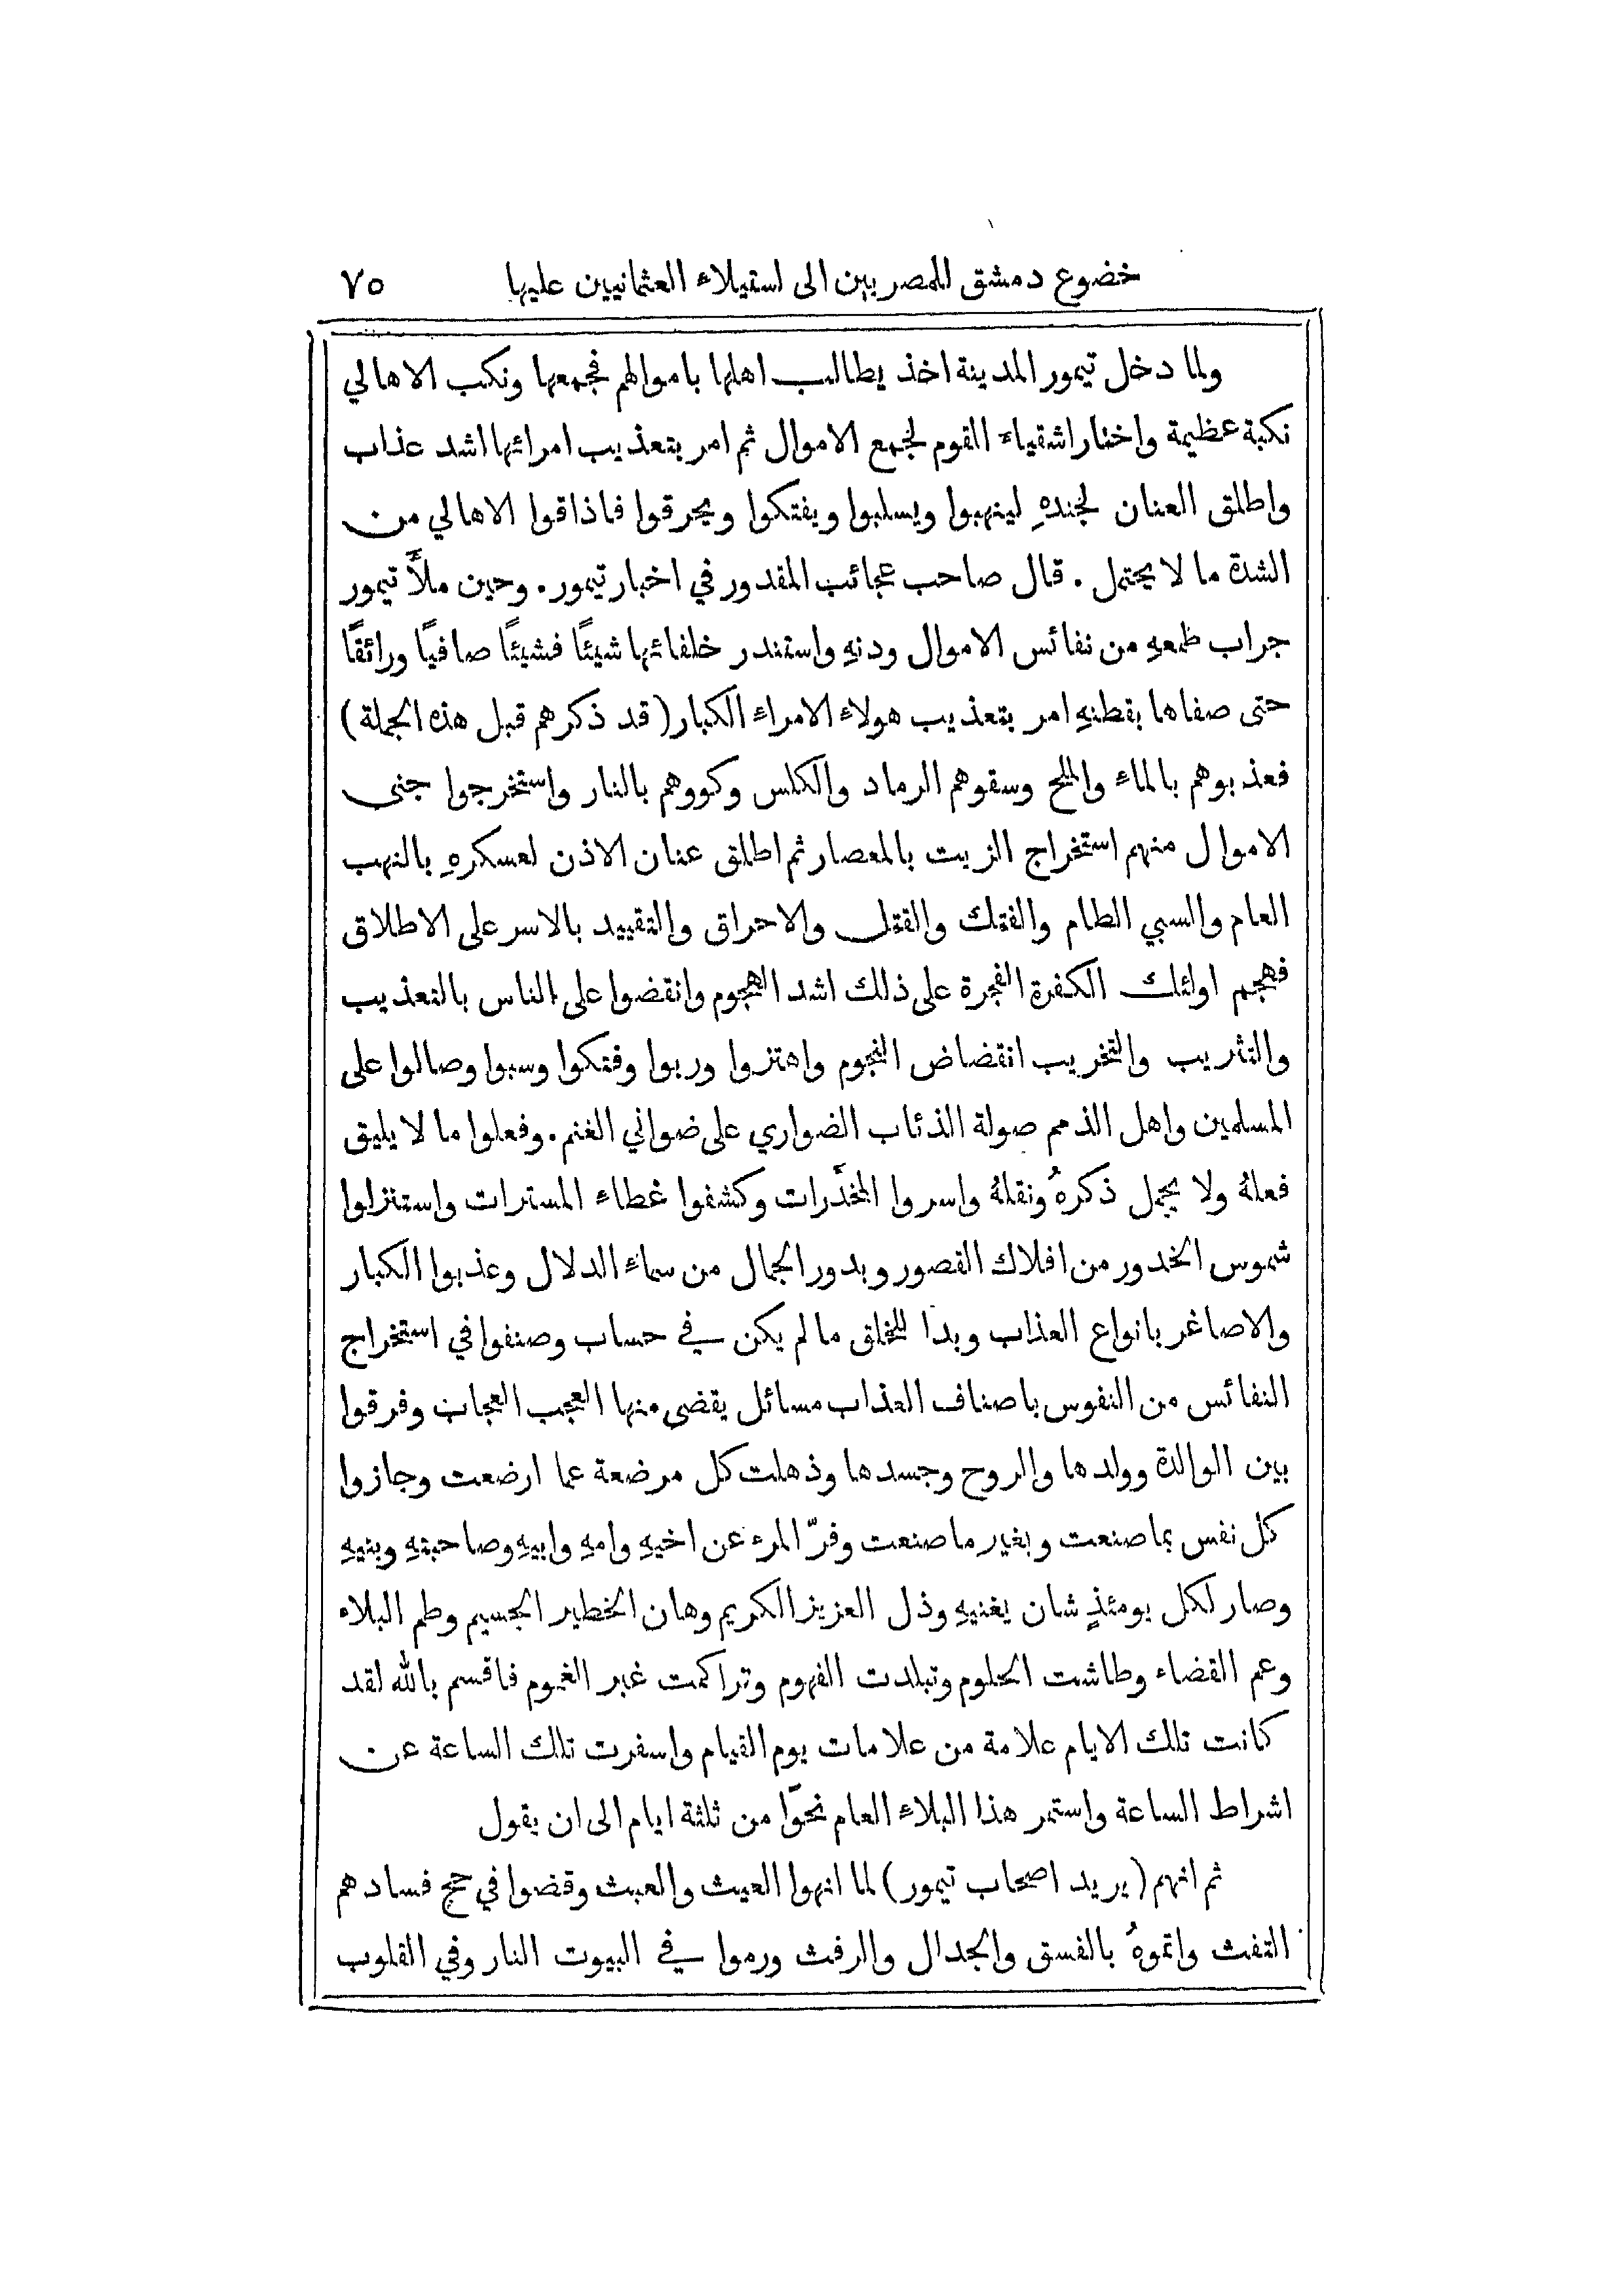 خضوع دمشق للمصريين الى استيلاء العثمانيين عليها ٧٥
ولما دخل تيمور المدينة اخذ يطالب اهلها باموالهم فجمعها ونكب الاهالي
نكبة عظيمة واختار اشقياء القوم لجمع الاموال ثم امر بتعذيب امرائها اشد عذاب
واطلق العنان لجندهِ لينهبوا ويسلبوا ويفتكوا ويحرقوا فاذاقوا الاهالي من
الشدة ما لا يحتمل . قال صاحب عجائب المقدور في اخبار تيمور. وحين ملأَ تيمور
جراب طمعهِ من نفائس الاموال ودنهِ واستندر خلفائها شيئًا فشيئًا صافيًا ورائقًا
حتى صفاها بقطنهِ امر بتعذيب هولاء الامراء الكبار (قد ذكرهم قبل هذه الجملة)
فعذبوهم بالماء والملح وسقوهم الرماد والكلس وكووهم بالنار واستخرجوا جنى
الاموال منهم استخراج الزيت بالمعصار ثم اطلق عنان الاذن لعسكرهِ بالنهب
العام والسبي الطام والفتك والقتل والاحراق والتقييد بالاسر على الاطلاق
فهجم اولئك الكفرة الفجرة على ذلك اشد الهجوم وانقضوا على الناس بالتعذيب
والتثريب والتخريب انقضاض النجوم واهتزوا وربوا وفتكوا وسبوا وصالوا على
المسلمين واهل الذمم صولة الذئاب الضواري على ضواني الغنم. وفعلوا ما لا يليق
فعلهُ ولا يجمل ذكرهُ ونقلهُ واسروا المخدَّرات وكشفوا غطاء المسترات واستنزلوا
شموس الخدور من افلاك القصور وبدور الجمال من سماء الدلال وعذبوا الكبار
والاصاغر بانواع العذاب وبدا للخلق ما لم يكن في حساب وصنفوا في استخراج
النفائس من النفوس باصناف العذاب مسائل يقضى منها العجب العجاب وفرقوا
بين الوالدة وولدها والروح وجسدها وذهلت كل مرضعة عما ارضعت وجازوا
كل نفس بما صنعت وبغير ما صنعت وفرّ المرء عن اخيهِ وامهِ وابيهِ وصاحبتهِ وبنيهِ
وصار لكل يومئذٍ شان يغنيهِ وذل العزيز الكريم وهان الخطير الجسيم وطم البلاء
وعم القضاء وطاشت الحلوم وتبلدت الفهوم وتراكمت غبر الغموم فاقسم بالله لقد
كانت تلك الايام علامة من علامات يوم القيام واسفرت تلك الساعة عن
اشراط الساعة واستمر هذا البلاء العام نحوًا من ثلثة ايام الى ان يقول
ثم انهم (يريد اصحاب تيمور) لما انهوا العيث والعبث وقضوا في حج فسادهم
التفث واتموهُ بالفسق والجدال والرفث ورموا في البيوت النار وفي القلوب